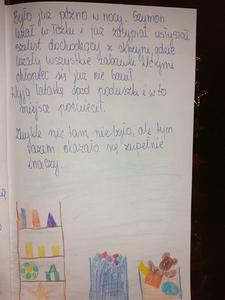 Było już późno w nocy. Szymon
leżał w łóżku i już zasypiał usłyszał
szelest dochodzący z skrzyni, gdzie
leżały wszystkie zabawki którymi
chłopiec się już nie bawił.
Wyją latarkę spod poduszki i w to
miejsce poświecił.
Zwykle nic tam nie było, ale tym
razem okazało się zupełnie
inaczej...